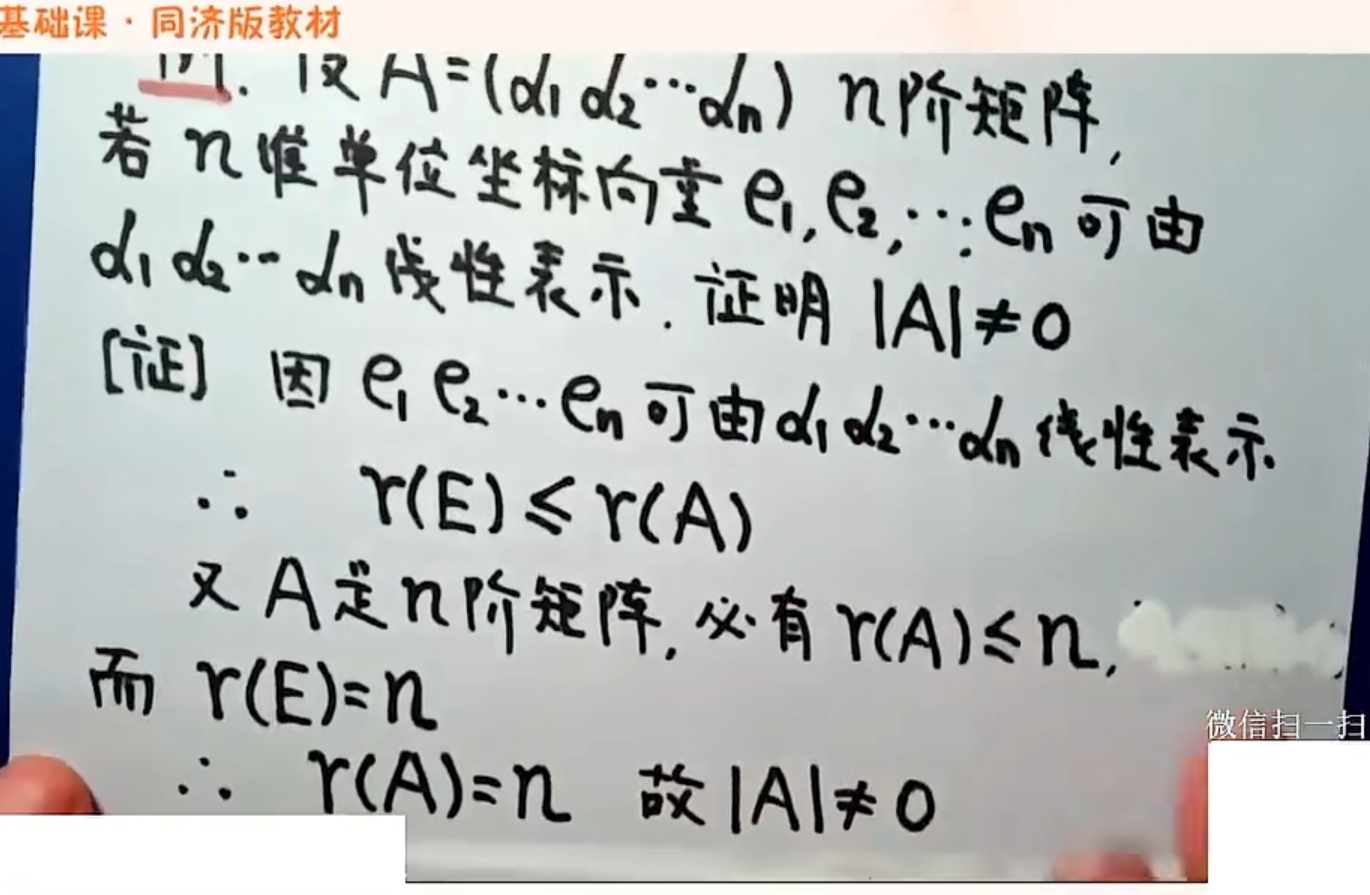 基础课·同济版教材
例. 设 A=(α₁ α₂⋯αₙ) n阶矩阵,
若 n 维单位坐标向量 e₁, e₂, ⋯, eₙ 可由
α₁ α₂⋯ αₙ 线性表示. 证明 |A|≠0
[证] 因 e₁ e₂⋯eₙ 可由 α₁ α₂⋯αₙ 线性表示.
∴ r(E)≤r(A)
又 A是n阶矩阵, 必有 r(A)≤n,
而 r(E)=n
微信扫一扫
∴ r(A)=n 故|A|≠0